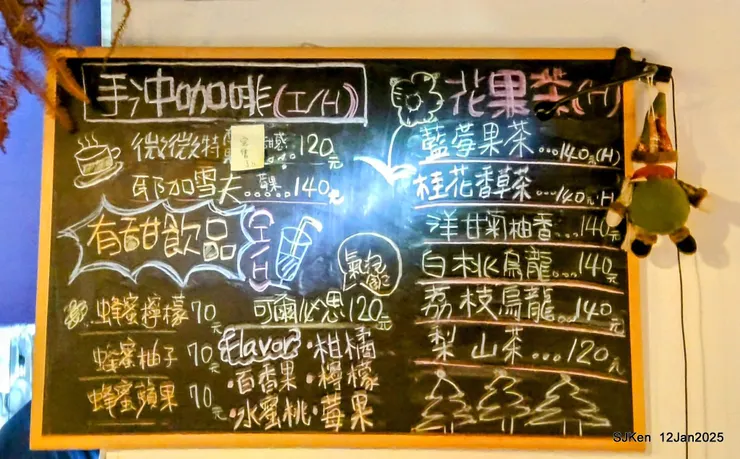 手沖咖啡(I/H)
微微特
120元
耶加雪夫....莓果...140元
有甜飲品
I/H
氣泡
蜂蜜檸檬 70元
蜂蜜柚子 70元
蜂蜜蘋果 70元
可爾必思120元
Flavor・柑橘
・百香果・檸檬
・水蜜桃・莓果
花果茶(H)
藍莓果茶...140元(H)
桂花香草茶...140元H
洋甘菊柚香...140元
白桃烏龍...140元
荔枝烏龍...140元
梨山茶...120元
SJKen 12Jan2025